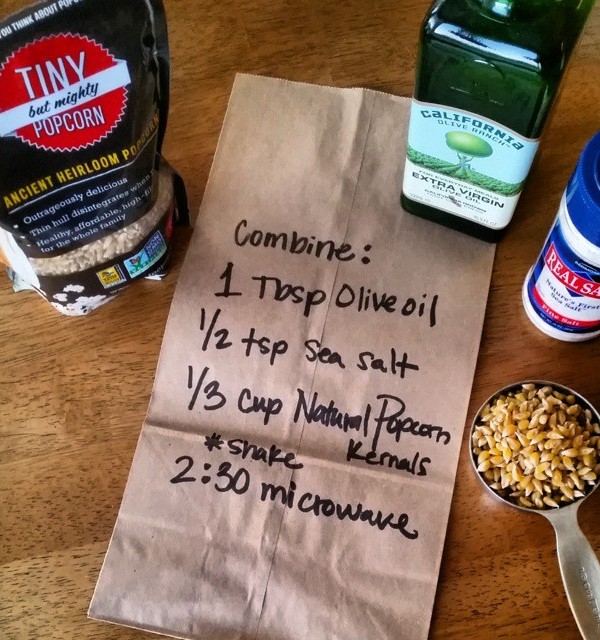 YOU THINK ABOUT POPC
TINY
but mighty
POPCORN
ANCIENT HEIRLOOM POPCORN
Outrageously delicious
Thin hull disintegrates when
Healthy, affordable, high-fi
for the whole family
CALIFORNIA
OLIVE RANCH
FOR EVERYDAY MEALS
EXTRA VIRGIN
OLIVE OIL
REAL SA
Nature's First
Sea Salt
Fine Salt
Combine:
1 Tbsp Olive oil
1/2 tsp sea salt
1/3 cup Natural Popcorn
*shake Kernals
2:30 microwave